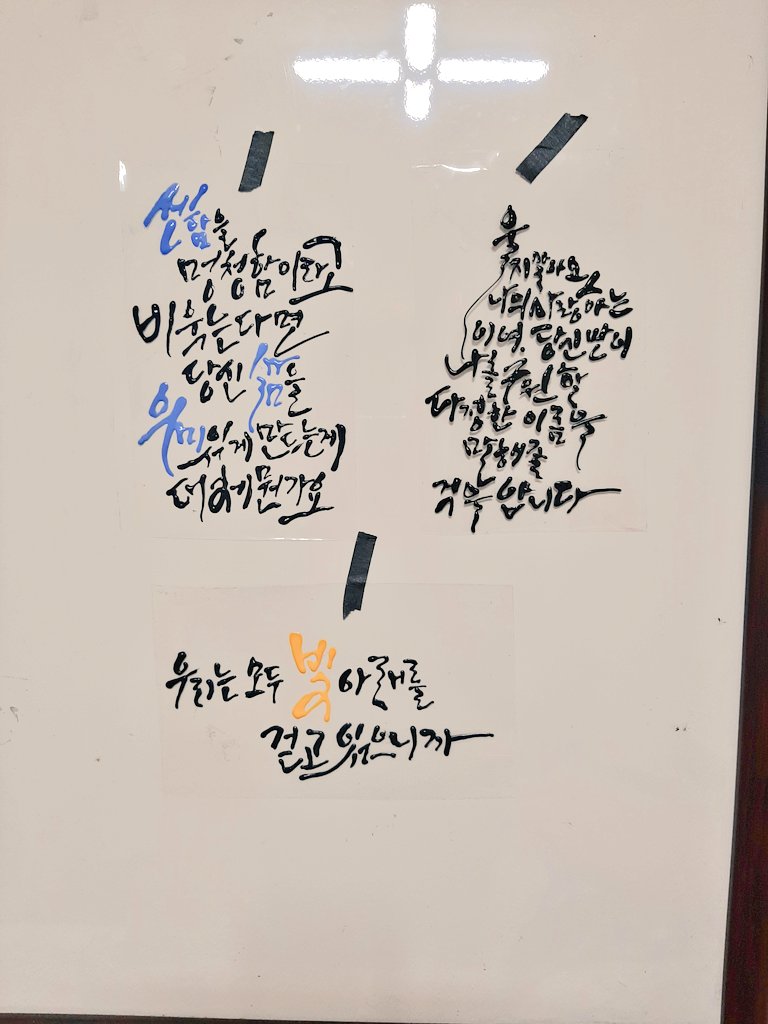 선함을
멍청함이라고
비웃는다면
당신 삶을
의미있게 만드는게
대체 뭔가요
울
지말아요
나의 사랑하는
이여. 당신만이
나를 구원할
다정한 이름을
말해줄
것을 압니다
우리는 모두 빛 아래를
걷고 있으니까